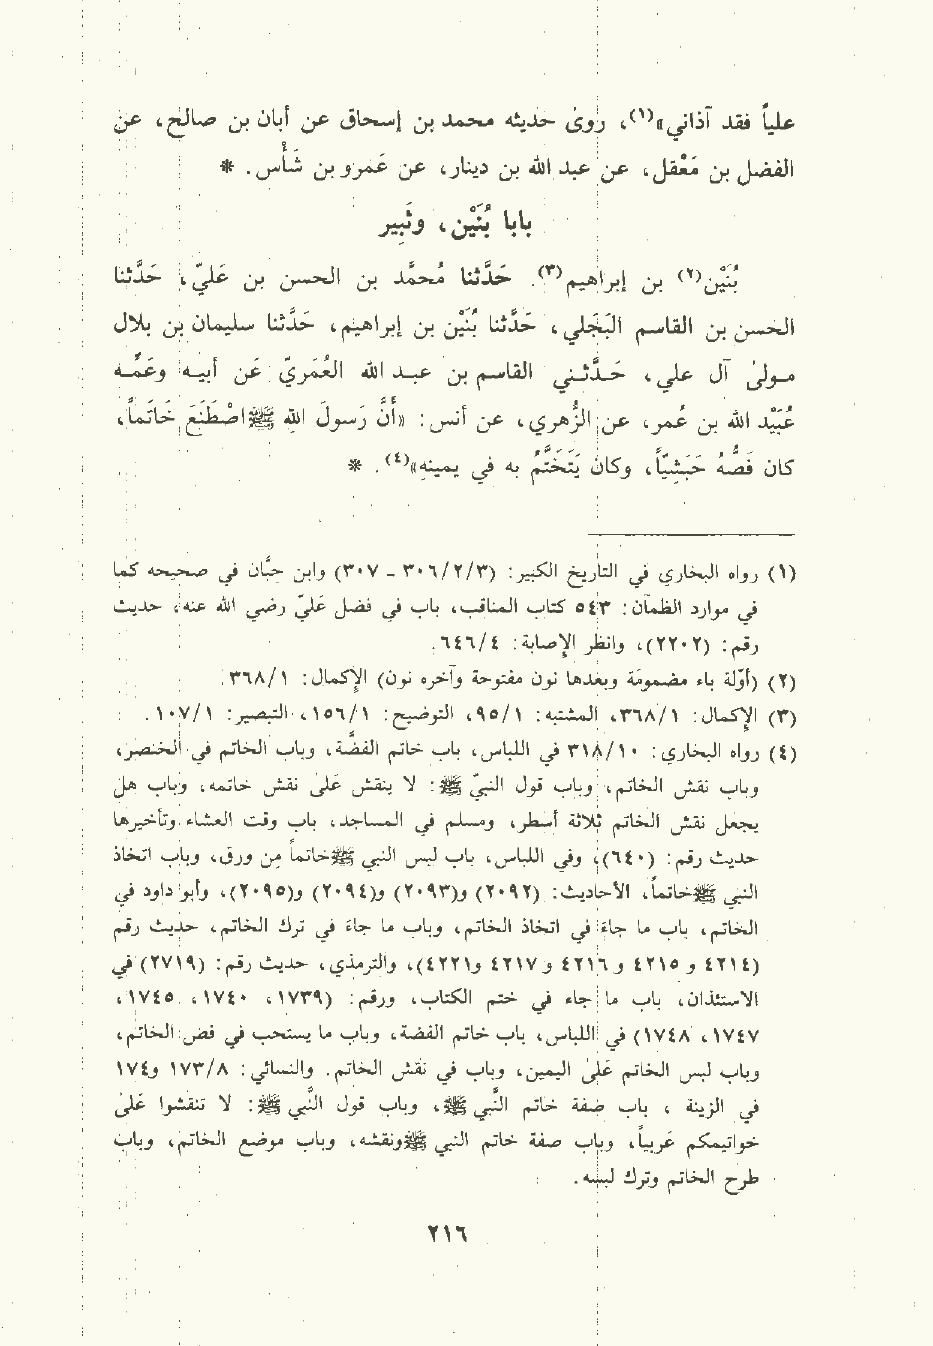 علياً فقد آذاني»(١)، روىٰ حديثه محمد بن إسحاق عن أبان بن صالح، عن
الفضل بن مَعْقل، عن عبد الله بن دينار، عن عَمرو بن شَأْس. *
بابا بُنَيْن، وثَبِير
بُنَيْن(٢) بن إبراهيم(٣). حَدَّثنا مُحمَّد بن الحسن بن عَليّ، حَدَّثنا
الحسن بن القاسم البَجَلي، حَدَّثنا بُنَيْن بن إبراهيم، حَدَّثنا سليمان بن بلال
مـولىٰ آل علي، حَـدَّثـني القاسم بن عبـد الله العُمَريّ عَن أبيـه وعَمِّـه
عُبَيْد الله بن عُمر، عن الزُّهري، عن أنس: «أَنَّ رَسولَ الله ﷺ اصْطَنَعَ خَاتَماً،
كان فَصُّهُ حَبَشِيّاً، وكان يَتَخَتَّمُ به في يمينهِ»(٤). *
(١) رواه البخاري في التاريخ الكبير: (٣/٢/٣٠٦ - ٣٠٧) وابن حبَّان في صحيحه كما
في موارد الظمآن: ٥٤٣ كتاب المناقب، باب في فضل عَليّ رضي الله عنه، حديث
رقم: (٢٢٠٢)، وانظر الإصابة: ٦٤٦/٤.
(٢) (أوّلة باء مضمومة وبعدها نون مفتوحة وآخره نون) الإكمال: ٣٦٨/١.
(٣) الإكمال: ٣٦٨/١، المشتبه: ٩٥/١، التوضيح: ١٥٦/١، التبصير: ١٠٧/١.
(٤) رواه البخاري: ٣١٨/١٠ في اللباس، باب خاتم الفضَّة، وباب الخاتم في الخنصر،
وباب نقش الخاتم، وباب قول النبيّ ﷺ: لا ينقش عَلىٰ نقش خاتمه، وباب هل
يجعل نقش الخاتم ثلاثة أسطر، ومسلم في المساجد، باب وقت العشاء وتأخيرها
حديث رقم: (٦٤٠)، وفي اللباس، باب لبس النبي ﷺ خاتماً مِن ورق، وباب اتخاذ
النبي ﷺ خاتماً، الأحاديث: (٢٠٩٢) و(٢٠٩٣) و(٢٠٩٤) و(٢٠٩٥)، وأبو داود في
الخاتم، باب ما جاء في اتخاذ الخاتم، وباب ما جاءَ في ترك الخاتم، حديث رقم
(٤٢١٤ و ٤٢١٥ و ٤٢١٦ و ٤٢١٧ و ٤٢٢١)، والترمذي، حديث رقم: (٢٧١٩) في
الاستئذان، باب ما جاء في ختم الكتاب، ورقم: (١٧٣٩، ١٧٤٠، ١٧٤٥،
١٧٤٧، ١٧٤٨) في اللباس، باب خاتم الفضة، وباب ما يستحب في فص الخاتم،
وباب لبس الخاتم عَلىٰ اليمين، وباب في نقش الخاتم. النسائي: ١٧٣/٨ و١٧٤
في الزينة ، باب صفة خاتم النَّبي ﷺ، وباب قول النَّبي ﷺ: لا تنقشوا عَلىٰ
خواتيمكم عَربياً، وباب صفة خاتم النبي ﷺ ونقشه، وباب موضع الخاتم، وباب
طرح الخاتم وترك لبسه.
٢١٦